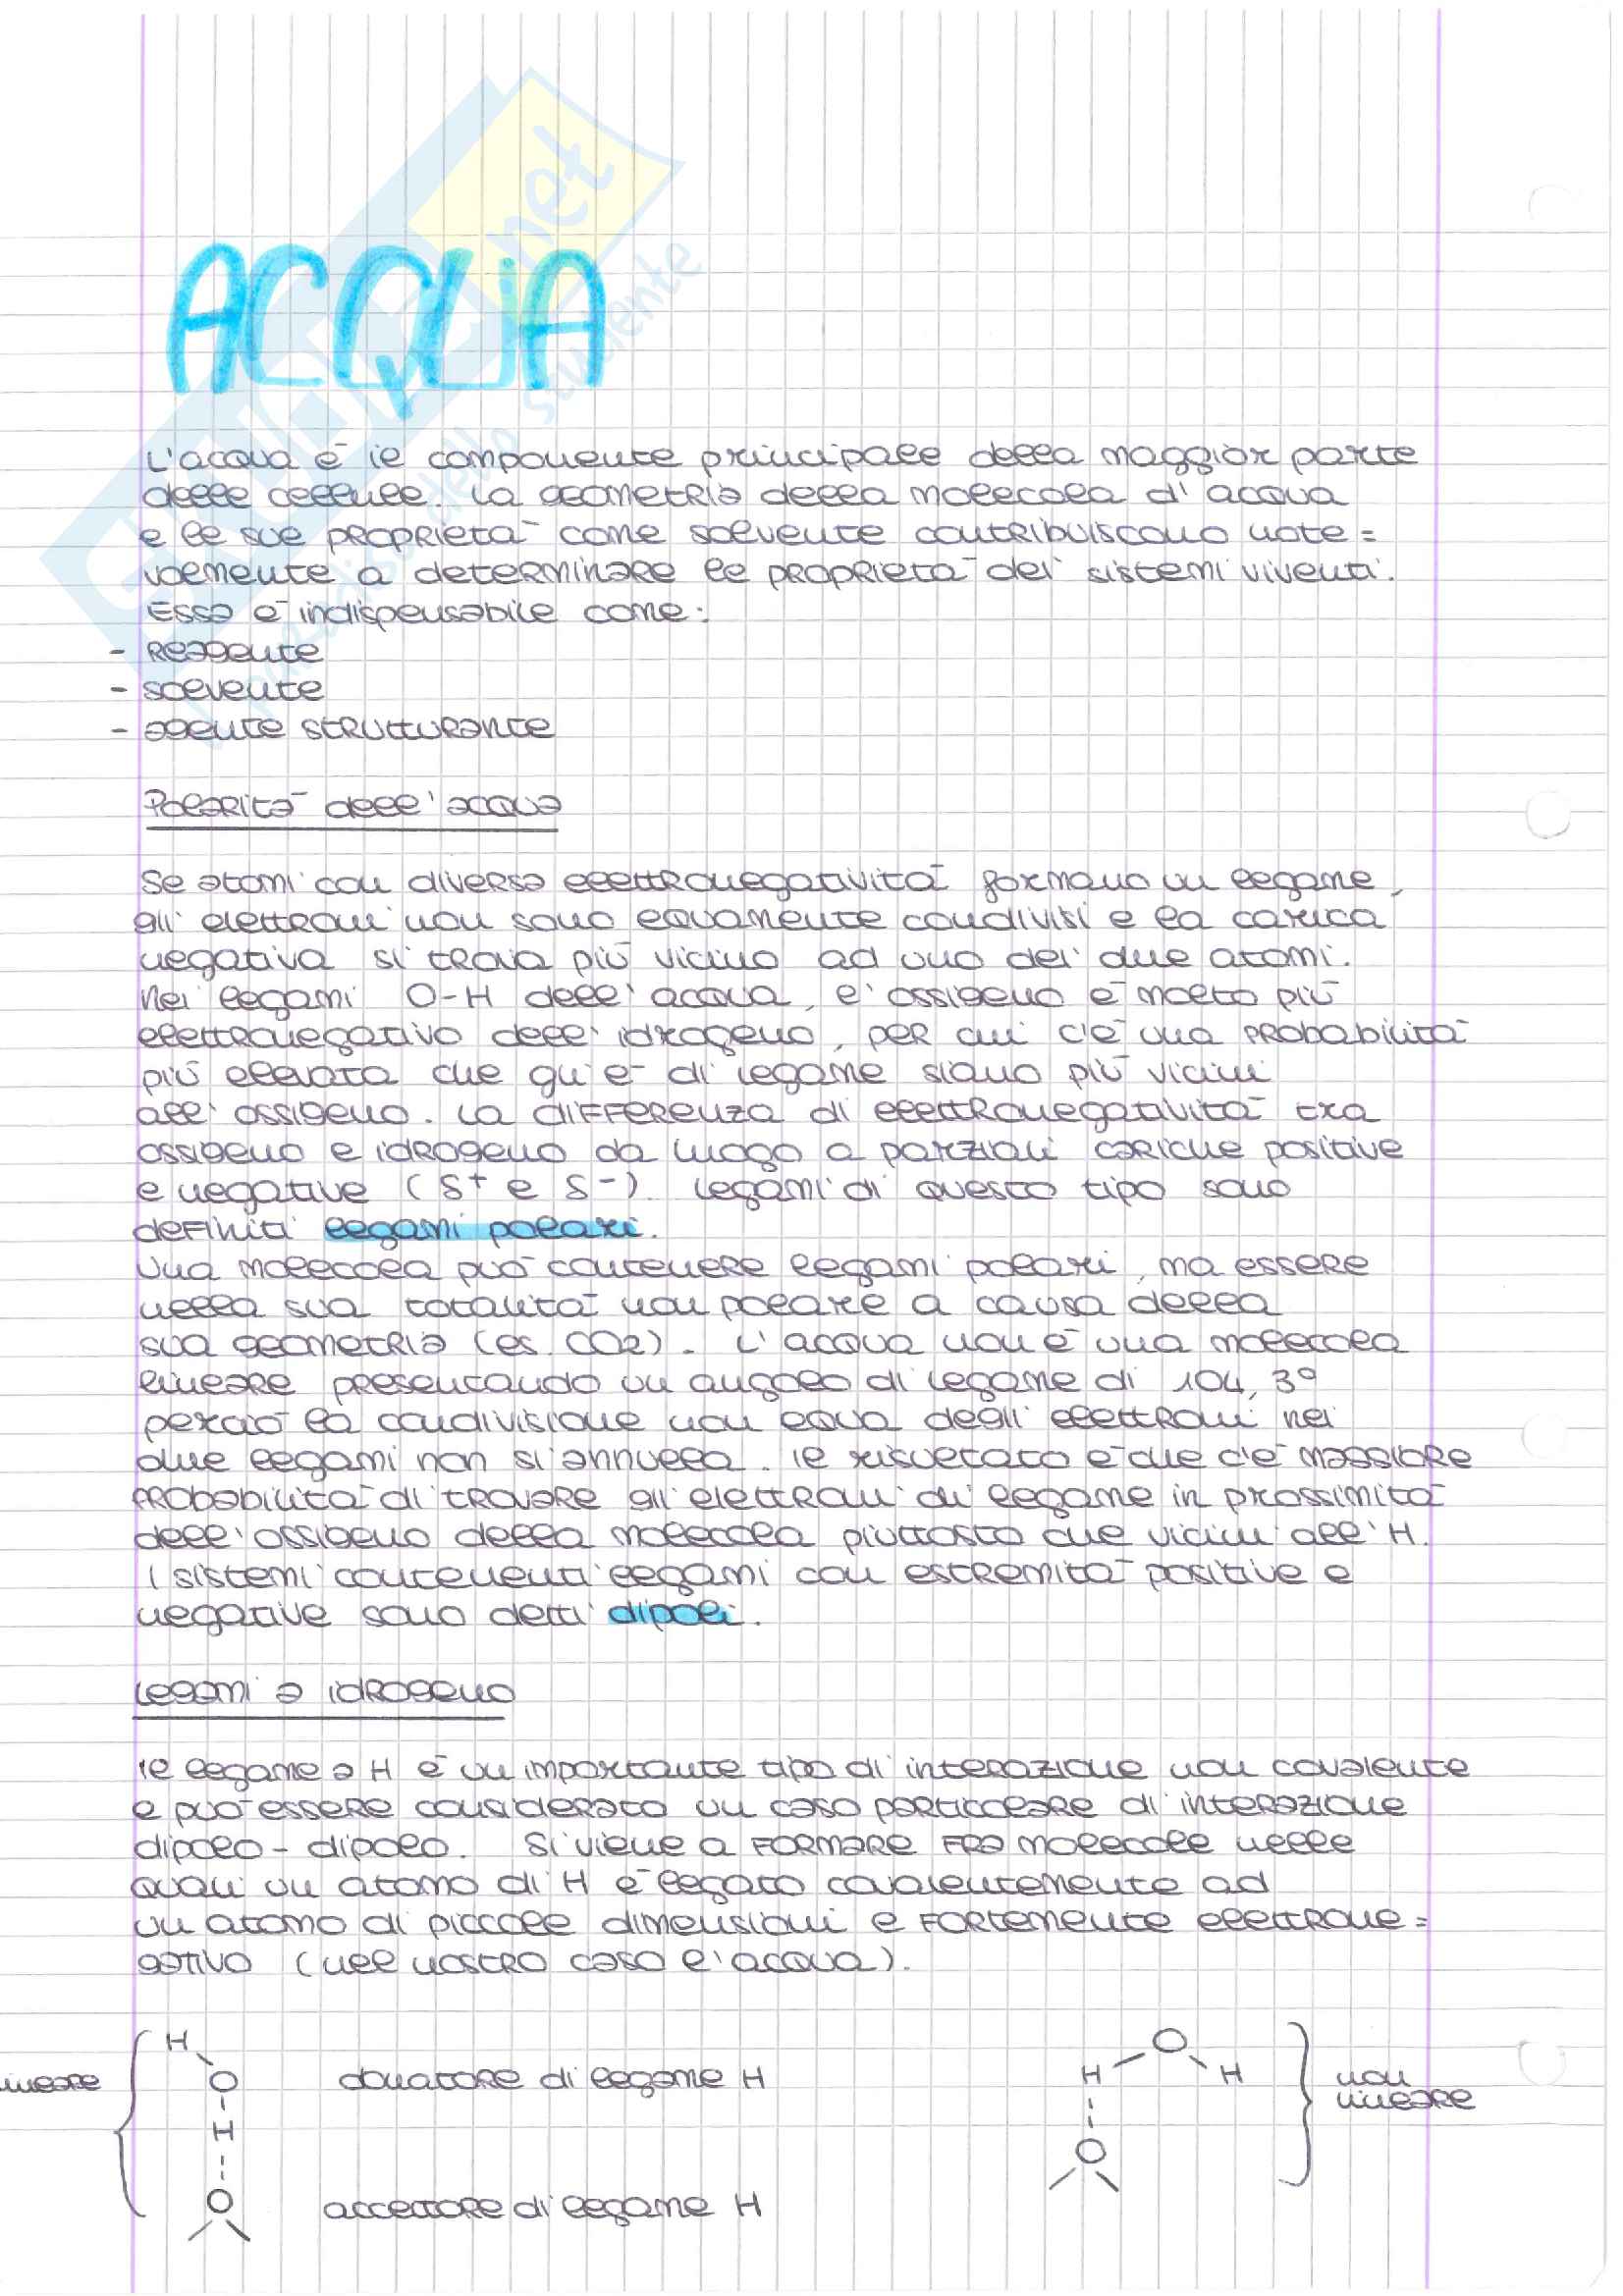 ACQUA
L'acqua è il componente principale della maggior parte
delle cellule. La geometria della molecola d'acqua
e le sue proprietà come solvente contribuiscono note=
volmente a determinare le proprietà dei sistemi viventi.
Essa è indispensabile come:
- Reagente
- solvente
- agente strutturante
Polarità dell'acqua
Se atomi con diversa elettronegatività formano un legame,
gli elettroni non sono equamente condivisi e la carica
negativa si trova più vicino ad uno dei due atomi.
Nei legami O-H dell'acqua, l'ossigeno è molto più
elettronegativo dell'idrogeno, per cui c'è una probabilità
più elevata che gli e- di legame siano più vicini
all'ossigeno. La differenza di elettronegatività tra
ossigeno e idrogeno da luogo a parziali cariche positive
e negative (δ+ e δ-). Legami di questo tipo sono
definiti legami polari.
Una molecola può contenere legami polari, ma essere
nella sua totalità non polare a causa della
sua geometria (es. CO2). L'acqua non è una molecola
lineare presentando un angolo di legame di 104,3°
perciò la condivisione non equa degli elettroni nei
due legami non si annulla. Il risultato è che c'è maggiore
probabilità di trovare gli elettroni di legame in prossimità
dell'ossigeno della molecola piuttosto che vicini all'H.
I sistemi contenenti legami con estremità positive e
negative sono detti dipoli.
Legami a idrogeno
Il legame a H è un importante tipo di interazione non covalente
e può essere considerato un caso particolare di interazione
dipolo-dipolo. Si viene a formare fra molecole nelle
quali un atomo di H è legato covalentemente ad
un atomo di piccole dimensioni e fortemente elettrone=
gativo (nel nostro caso l'acqua).
H
O
H
O
lineare
donatore di legame H
accettore di legame H
O
H H
O
non
lineare